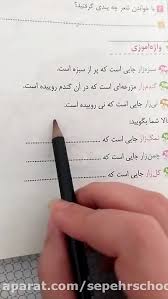 با خواندن شعر چه پندی گرفتید؟
واژه‌آموزی
سبزه‌زار جایی است که پر از سبزه است.
گندم‌زار مزرعه‌ای است که در آن گندم روییده است.
نی‌زار جایی است که نی روییده است.
حالا شما بگویید:
نمک‌زار جایی است که
چمن‌زار جایی است که
گل‌زار جایی است که
aparat.com/sepehrschool